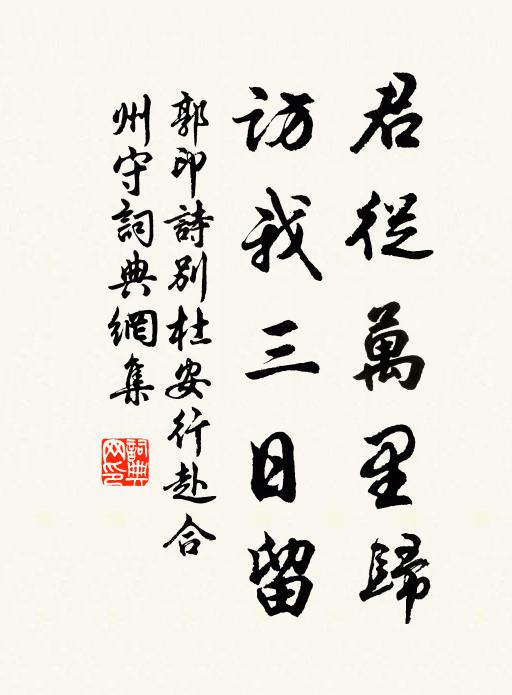 君從萬里歸
訪我三日留
郭印詩別杜安行赴合
州守詞典網集
詞典網印